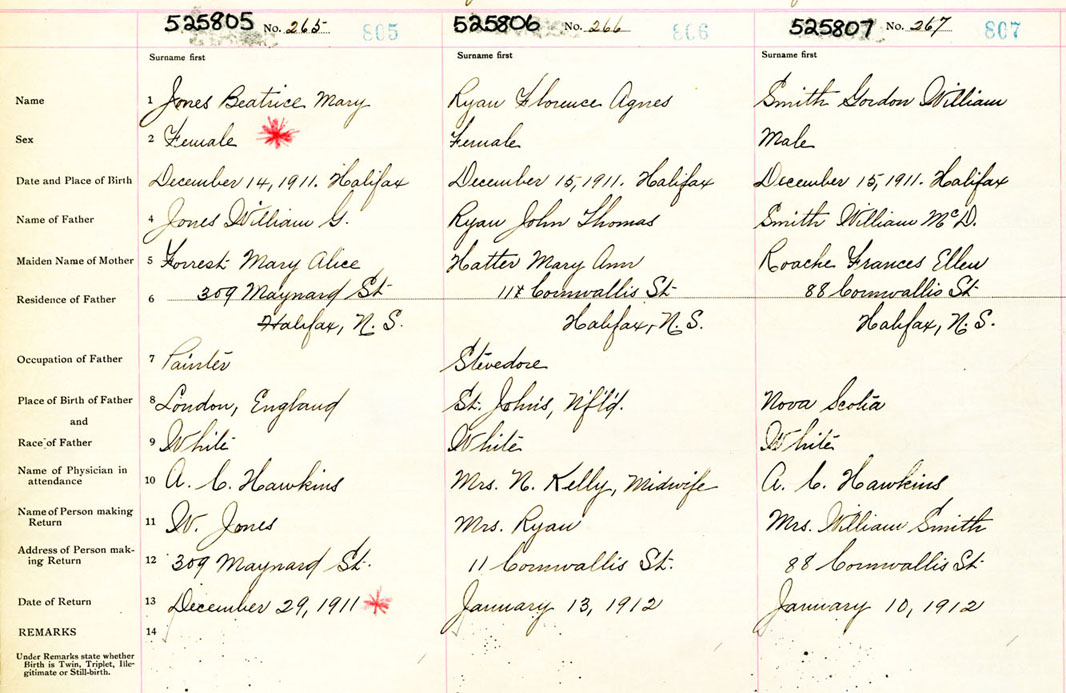 525805 No. 265 805 525806 No. 266 806 525807 No. 267 807
Surname first Surname first Surname first
Name 1 Jones Beatrice Mary Ryan Florence Agnes Smith Gordon William
Sex 2 Female Female Male
Date and Place of Birth 3 December 14, 1911. Halifax December 15, 1911. Halifax December 15, 1911. Halifax
Name of Father 4 Jones William G. Ryan John Thomas Smith William McD.
Maiden Name of Mother 5 Forrest Mary Alice Hatter Mary Ann Roache Frances Ellen
Residence of Father 6 309 Maynard St Cornwallis St 88 Cornwallis St
Halifax, N.S. Halifax, N.S. Halifax, N.S.
Occupation of Father 7 Painter Stevedore
Place of Birth of Father 8 London, England St. John's, Nfld. Nova Scotia
and
Race of Father 9 White White White
Name of Physician in
attendance 10 A. C. Hawkins Mrs. N. Kelly, Midwife A. C. Hawkins
Name of Person making
Return 11 W. Jones Mrs. Ryan Mrs. William Smith
Address of Person mak-
ing Return 12 309 Maynard St. 11 Cornwallis St. 88 Cornwallis St
Date of Return 13 December 29, 1911 January 13, 1912 January 10, 1912
REMARKS 14
Under Remarks state whether
Birth is Twin, Triplet, Ille-
gitimate or Still-birth.